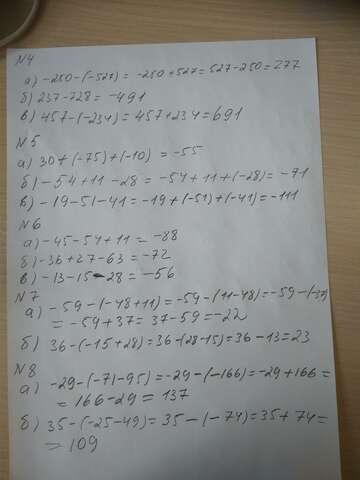 N4
а) -250-(-527) = -250+527=527-250=277
б) 237-728= -491
в) 457-(-234)=457+234=691
N5
а) 30+(-75)+(-10) = -55
б) -54+11-28 = -54+11+(-28)= -71
в) -19-51-41=-19+(-51)+(-41)=-111
N6
а) -45-54+11 = -88
б) -36+27-63 = -72
в) -13-15-28 = -56
N7
а) -59-(-48+11)=-59-(11-48)=-59-(-37)
= -59+37= 37-59=-22
б) 36-(-15+28)=36-(28-15)=36-13=23
N8
а) -29-(-71-95)=-29-(-166)=-29+166=
= 166-29 = 137
б) 35-(-25-49)=35-(-74)=35+74=
= 109